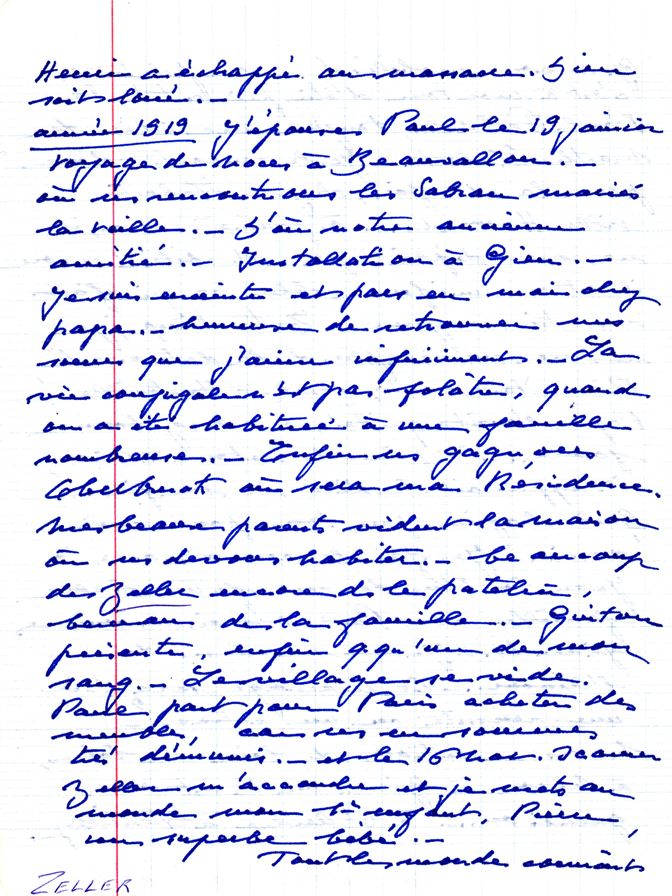 Henri a échappé au massacre. Dieu
soit loué. –
année 1919 J'épouse Paul le 19 janvier
voyage de noces à Beauvallon. –
où ns rencontrons les Sabran mariés
la veille. – D'où notre ancienne
amitié. – Installation à Gien. –
Je suis enceinte et pars en mai chez
papa. – heureuse de retrouver mes
soeurs que j'aime infiniment. – La
vie conjugale n'est pas folâtre, quand
on a été habituée à une famille
nombreuse. – Enfin ns gagnons
Oberbruck où sera ma Résidence.
Mes beaux parents vident la maison
où ns devons habiter. – beaucoup
des Zeller encore ds le patelin,
berceau de la famille. – Guiton
présente, enfin qqu'un de mon
sang. – Le village se vide.
Paul part pour Paris acheter des
meubles, car ns en sommes
très démunis. – et le 16 Nov.
Zeller m'accouche et je mets au
monde mon 1er enfant, Pierre,
un superbe bébé. –
Tout le monde
ZELLER